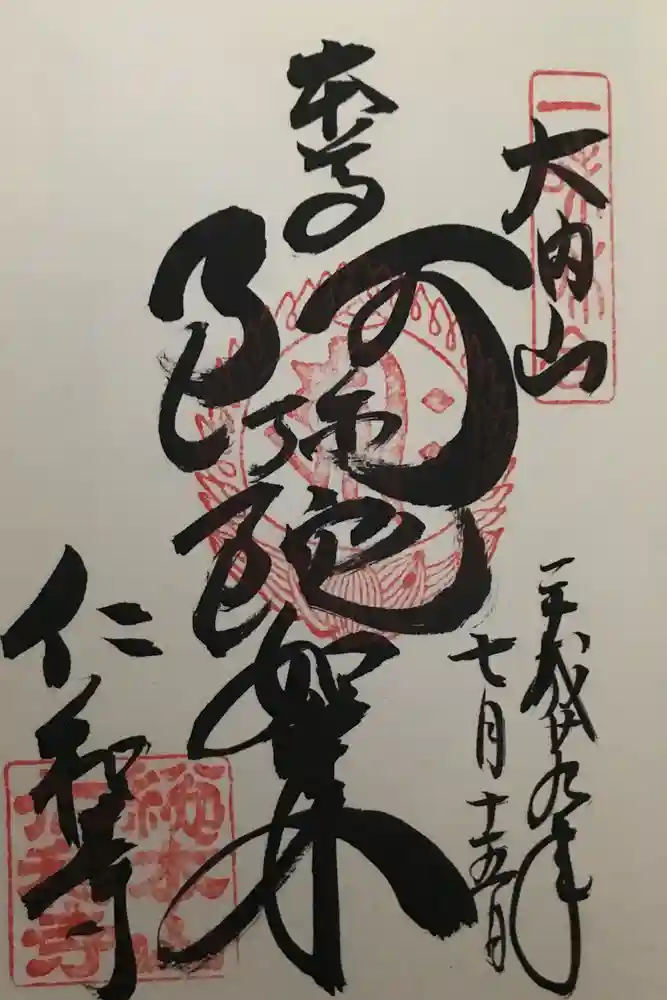 大内山
平成廿九年
七月十五日
本尊
阿弥陀如来
仁和寺
総本山
仁和寺